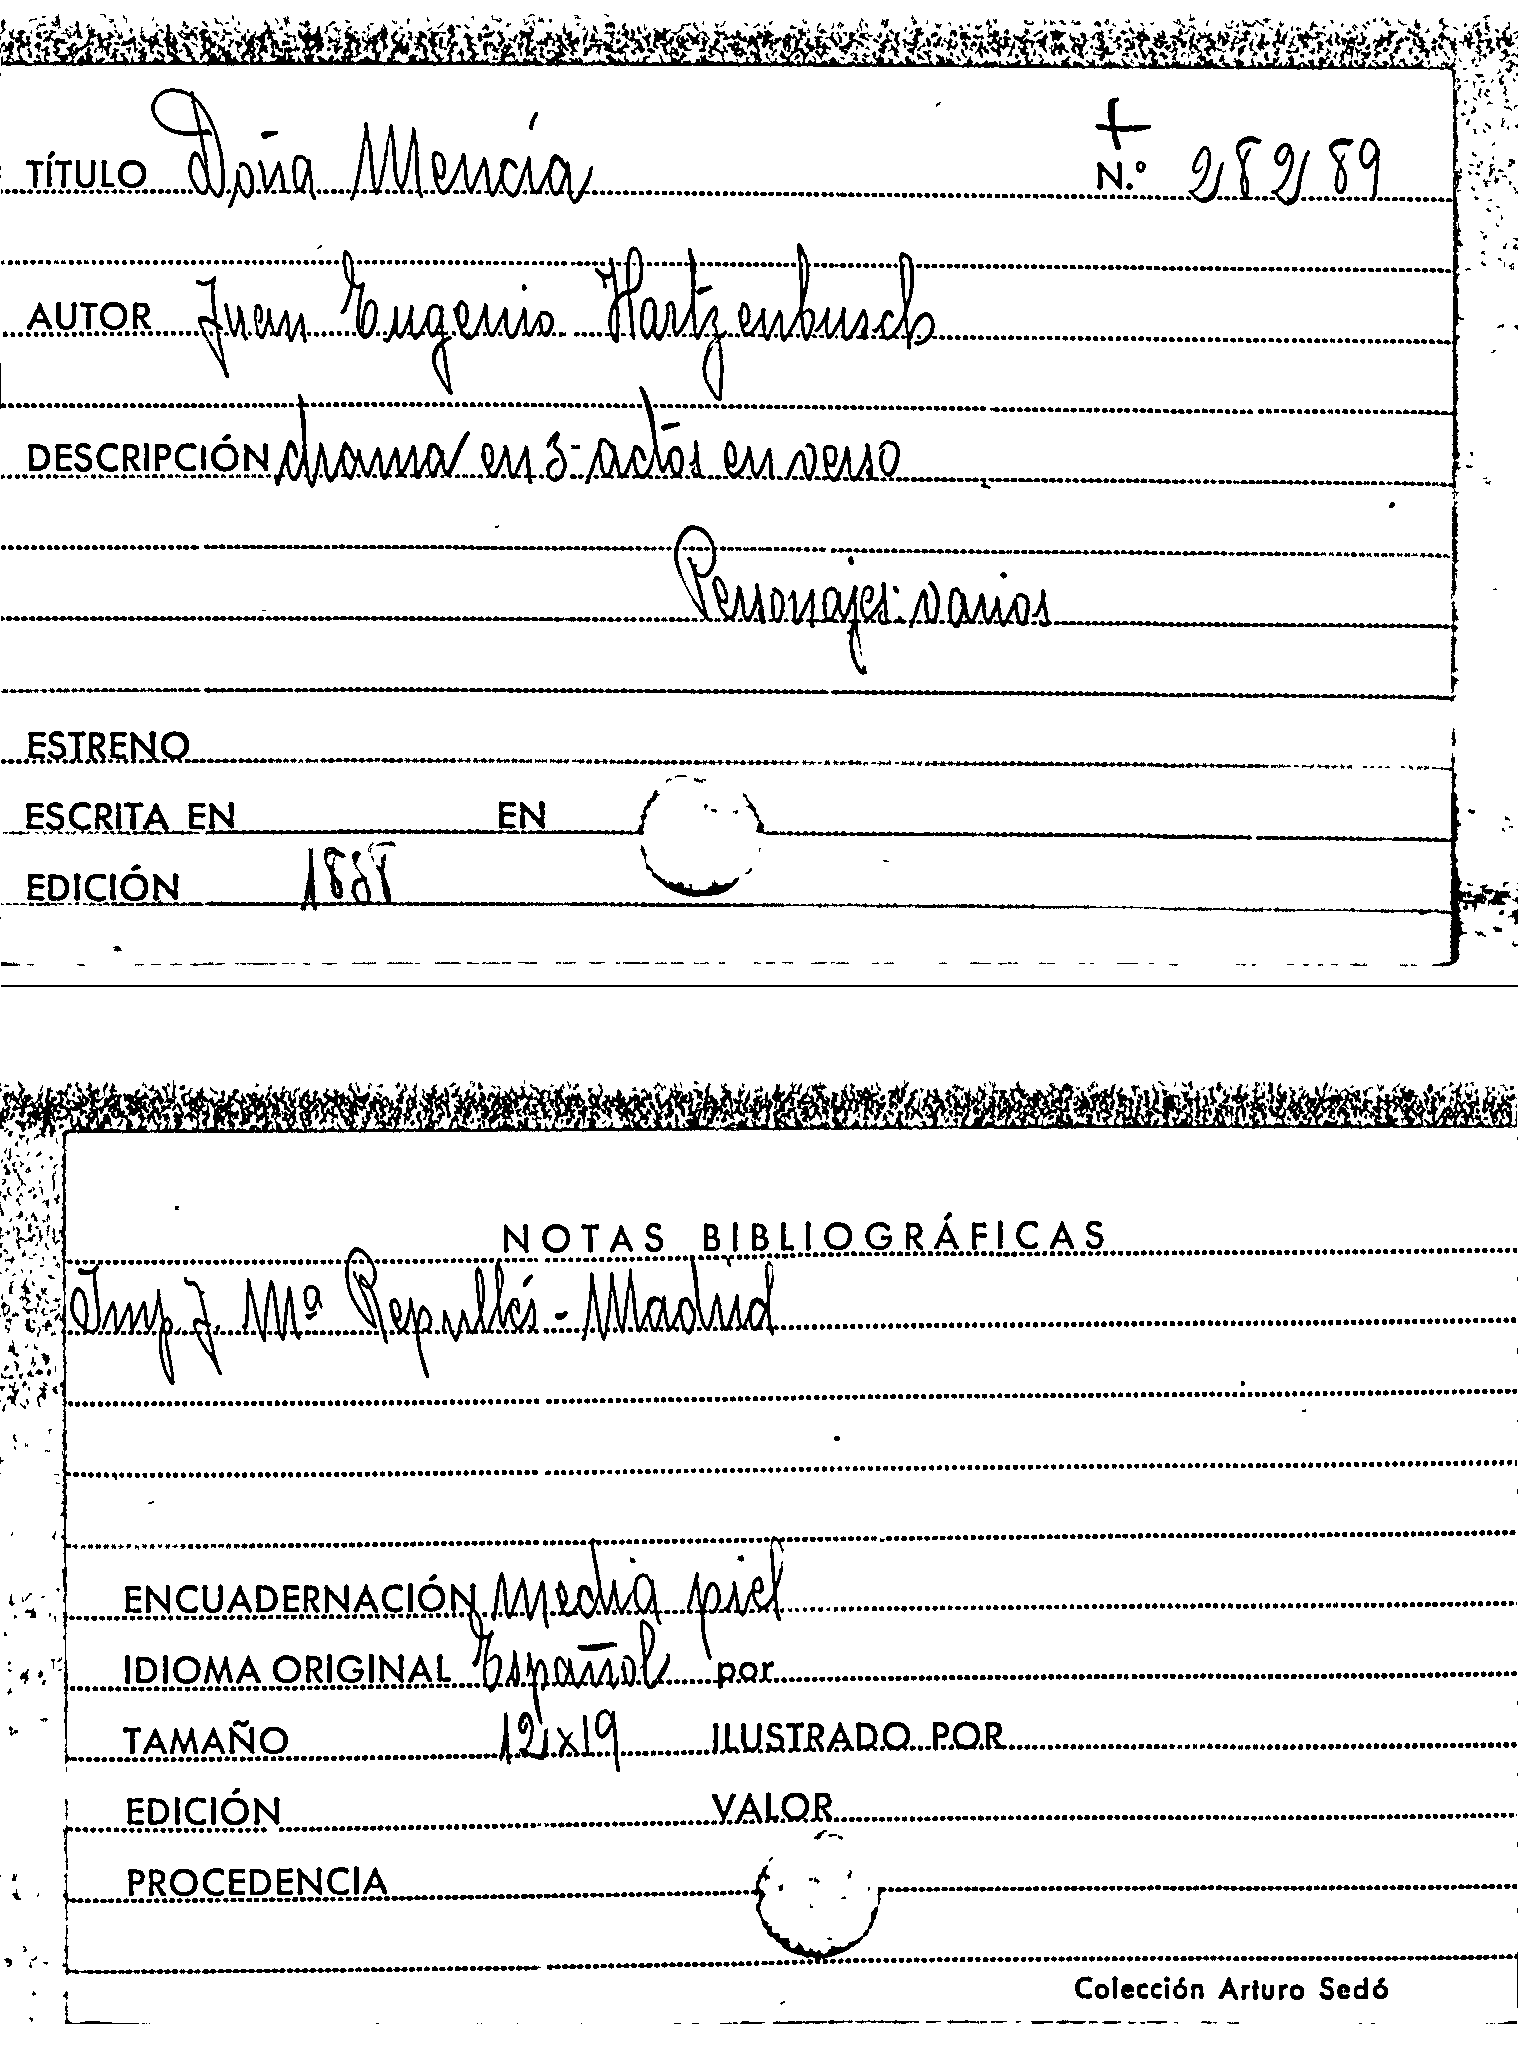 +
TÍTULO Doña Mencía N.º 28289
AUTOR Juan Eugenio Hartzenbusch
DESCRIPCIÓN drama en 3 actos en verso
Personajes: varios
ESTRENO
ESCRITA EN EN
EDICIÓN 1838
NOTAS BIBLIOGRÁFICAS
Imp. J. Mª Repullés - Madrid
ENCUADERNACIÓN media piel
IDIOMA ORIGINAL Español por
TAMAÑO 12x19 ILUSTRADO POR
EDICIÓN VALOR
PROCEDENCIA
Colección Arturo Sedó